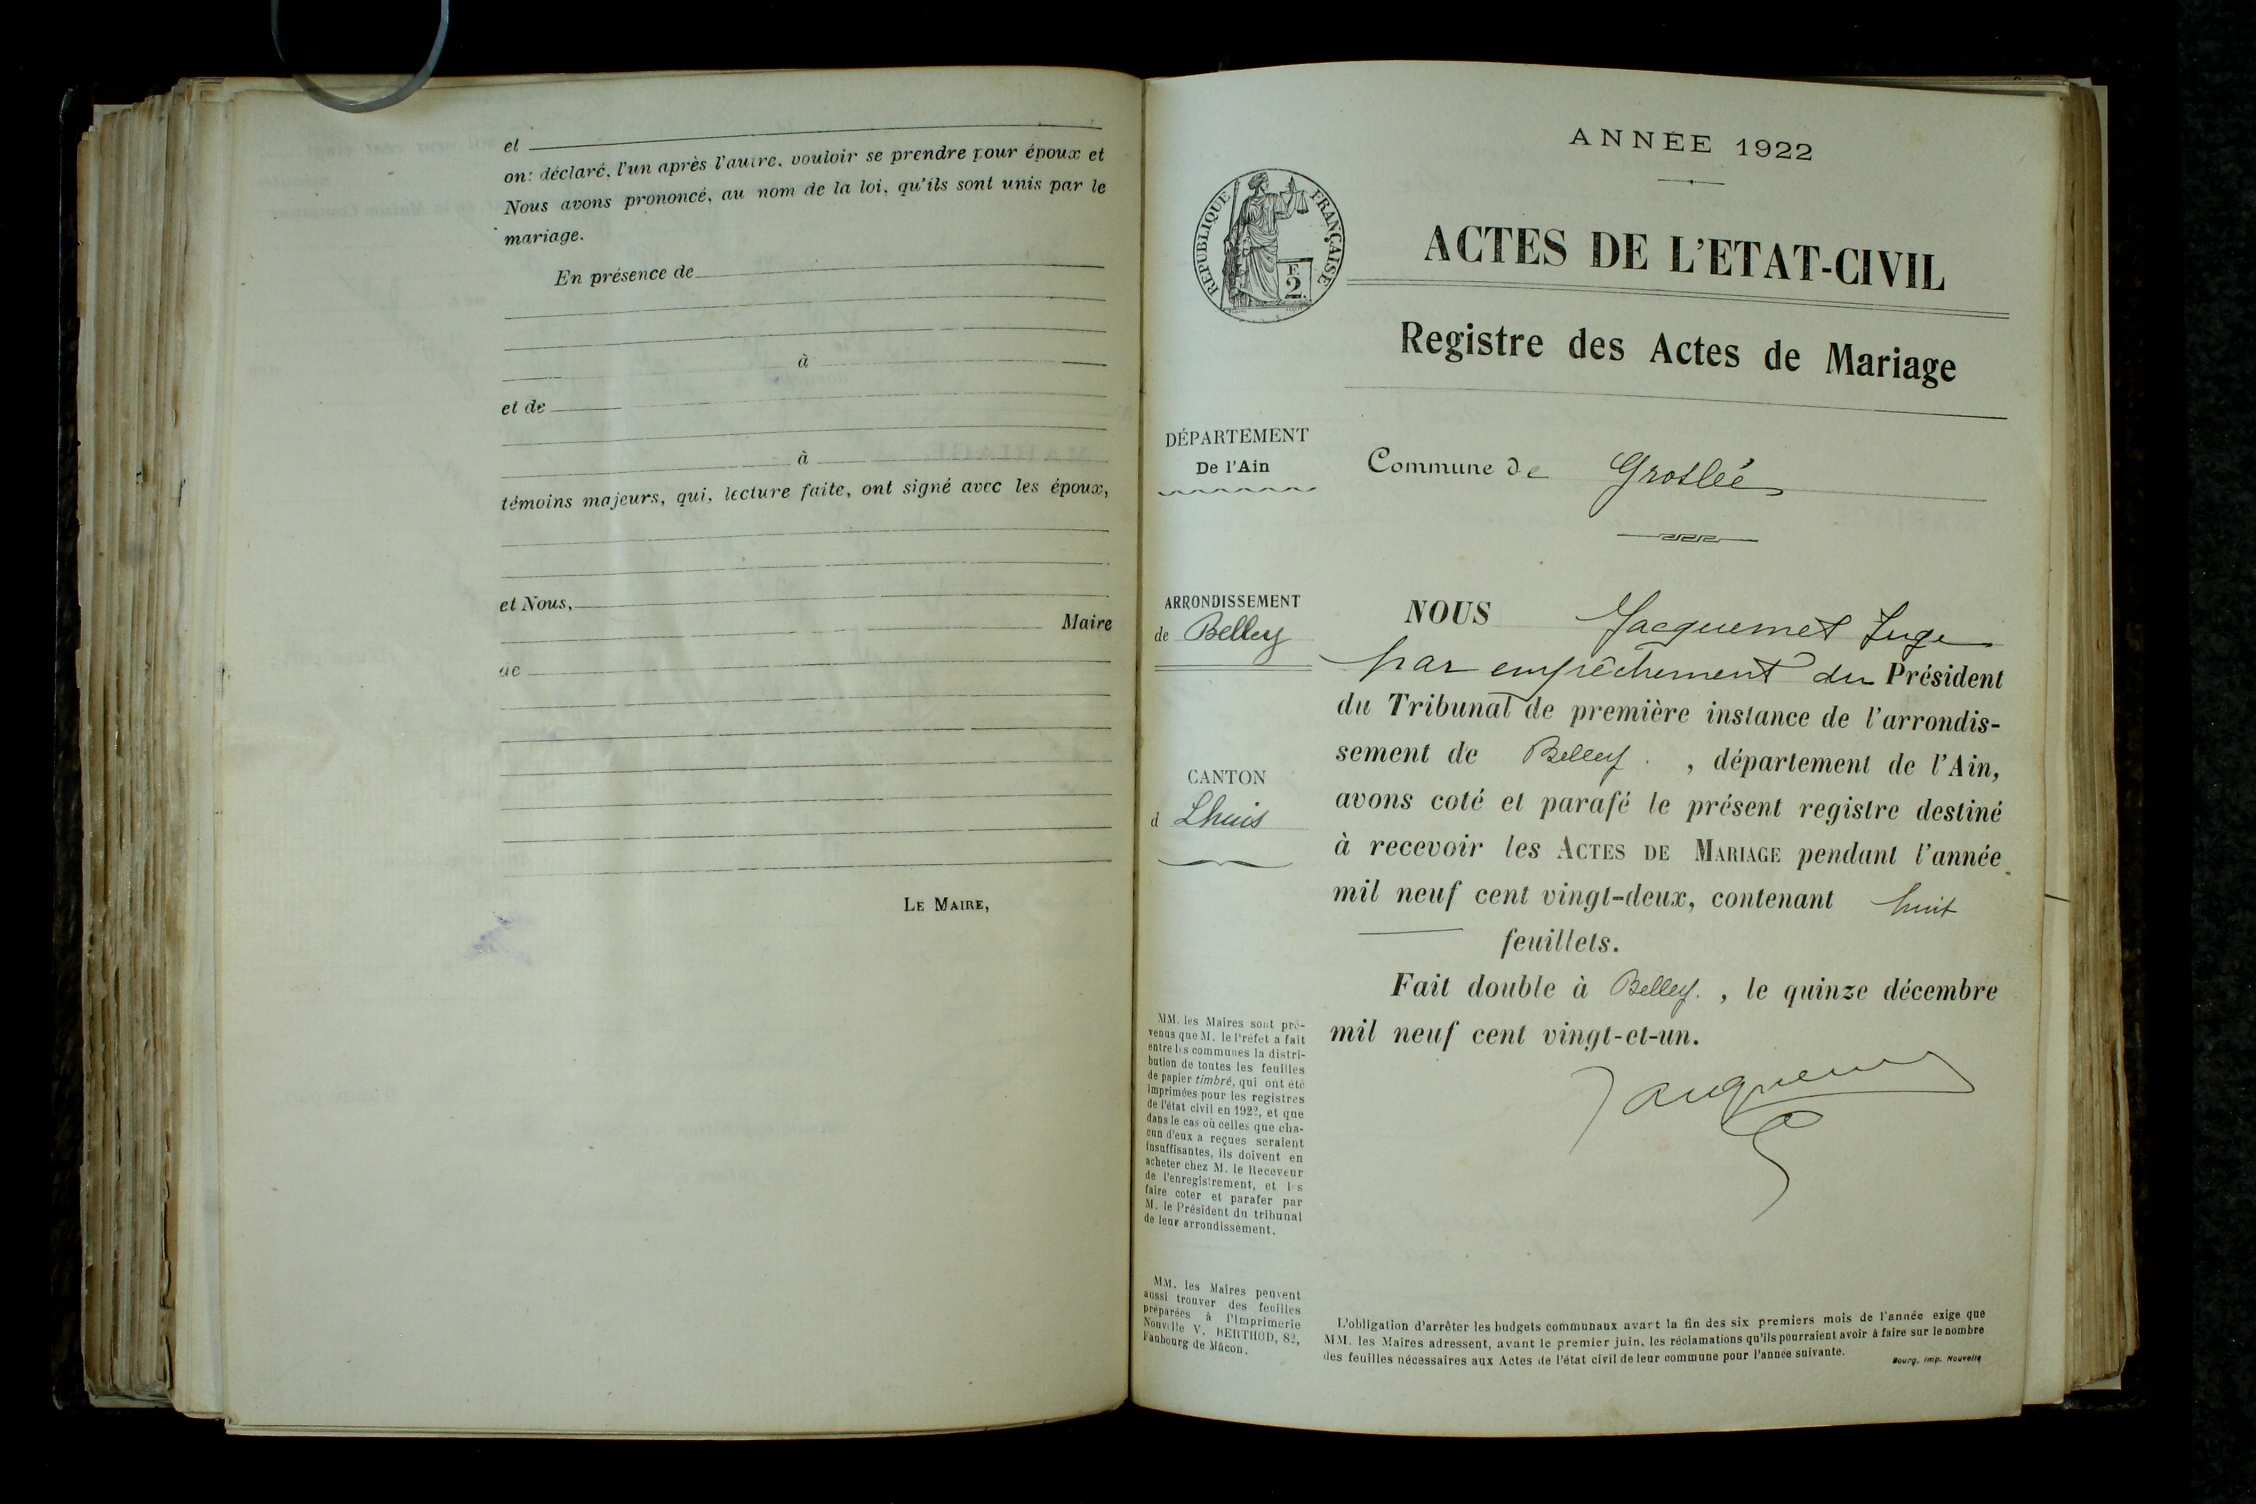 et
ont déclaré, l'un après l'autre, vouloir se prendre pour époux et
Nous avons prononcé, au nom de la loi, qu'ils sont unis par le
mariage.
En présence de
à
et de
à
témoins majeurs, qui, lecture faite, ont signé avec les époux,
et Nous,
Maire
de
LE MAIRE,
ANNÉE 1922
RÉPUBLIQUE FRANÇAISE
F.
2.
ACTES DE L'ETAT-CIVIL
Registre des Actes de Mariage
DÉPARTEMENT
De l'Ain
Commune de Groslée
ARRONDISSEMENT
de Belley
CANTON
d Lhuis
NOUS Jacquemet Juge
par empêchement du Président
du Tribunal de première instance de l'arrondis-
sement de Belley. , département de l'Ain,
avons coté et parafé le présent registre destiné
à recevoir les ACTES DE MARIAGE pendant l'année
mil neuf cent vingt-deux, contenant huit
feuillets.
Fait double à Belley. , le quinze décembre
mil neuf cent vingt-et-un.
MM. les Maires sont pré-
venus que M. le Préfet a fait
entre les communes la distri-
bution de toutes les feuilles
de papier timbré, qui ont été
imprimées pour les registres
de l'état civil en 1922, et que
dans le cas où celles que cha-
cun d'eux a reçues seraient
insuffisantes, ils doivent en
acheter chez M. le Receveur
de l'enregistrement, et les
faire coter et parafer par
M. le Président du tribunal
de leur arrondissement.
MM. les Maires peuvent
aussi trouver des feuilles
préparées à l'Imprimerie
Nouvelle V. BERTHOD, 82,
Faubourg de Mâcon.
L'obligation d'arrêter les budgets communaux avant la fin des six premiers mois de l'année exige que
MM. les Maires adressent, avant le premier juin, les réclamations qu'ils pourraient avoir à faire sur le nombre
des feuilles nécessaires aux Actes de l'état civil de leur commune pour l'année suivante.
Bourg, Imp. Nouvelle